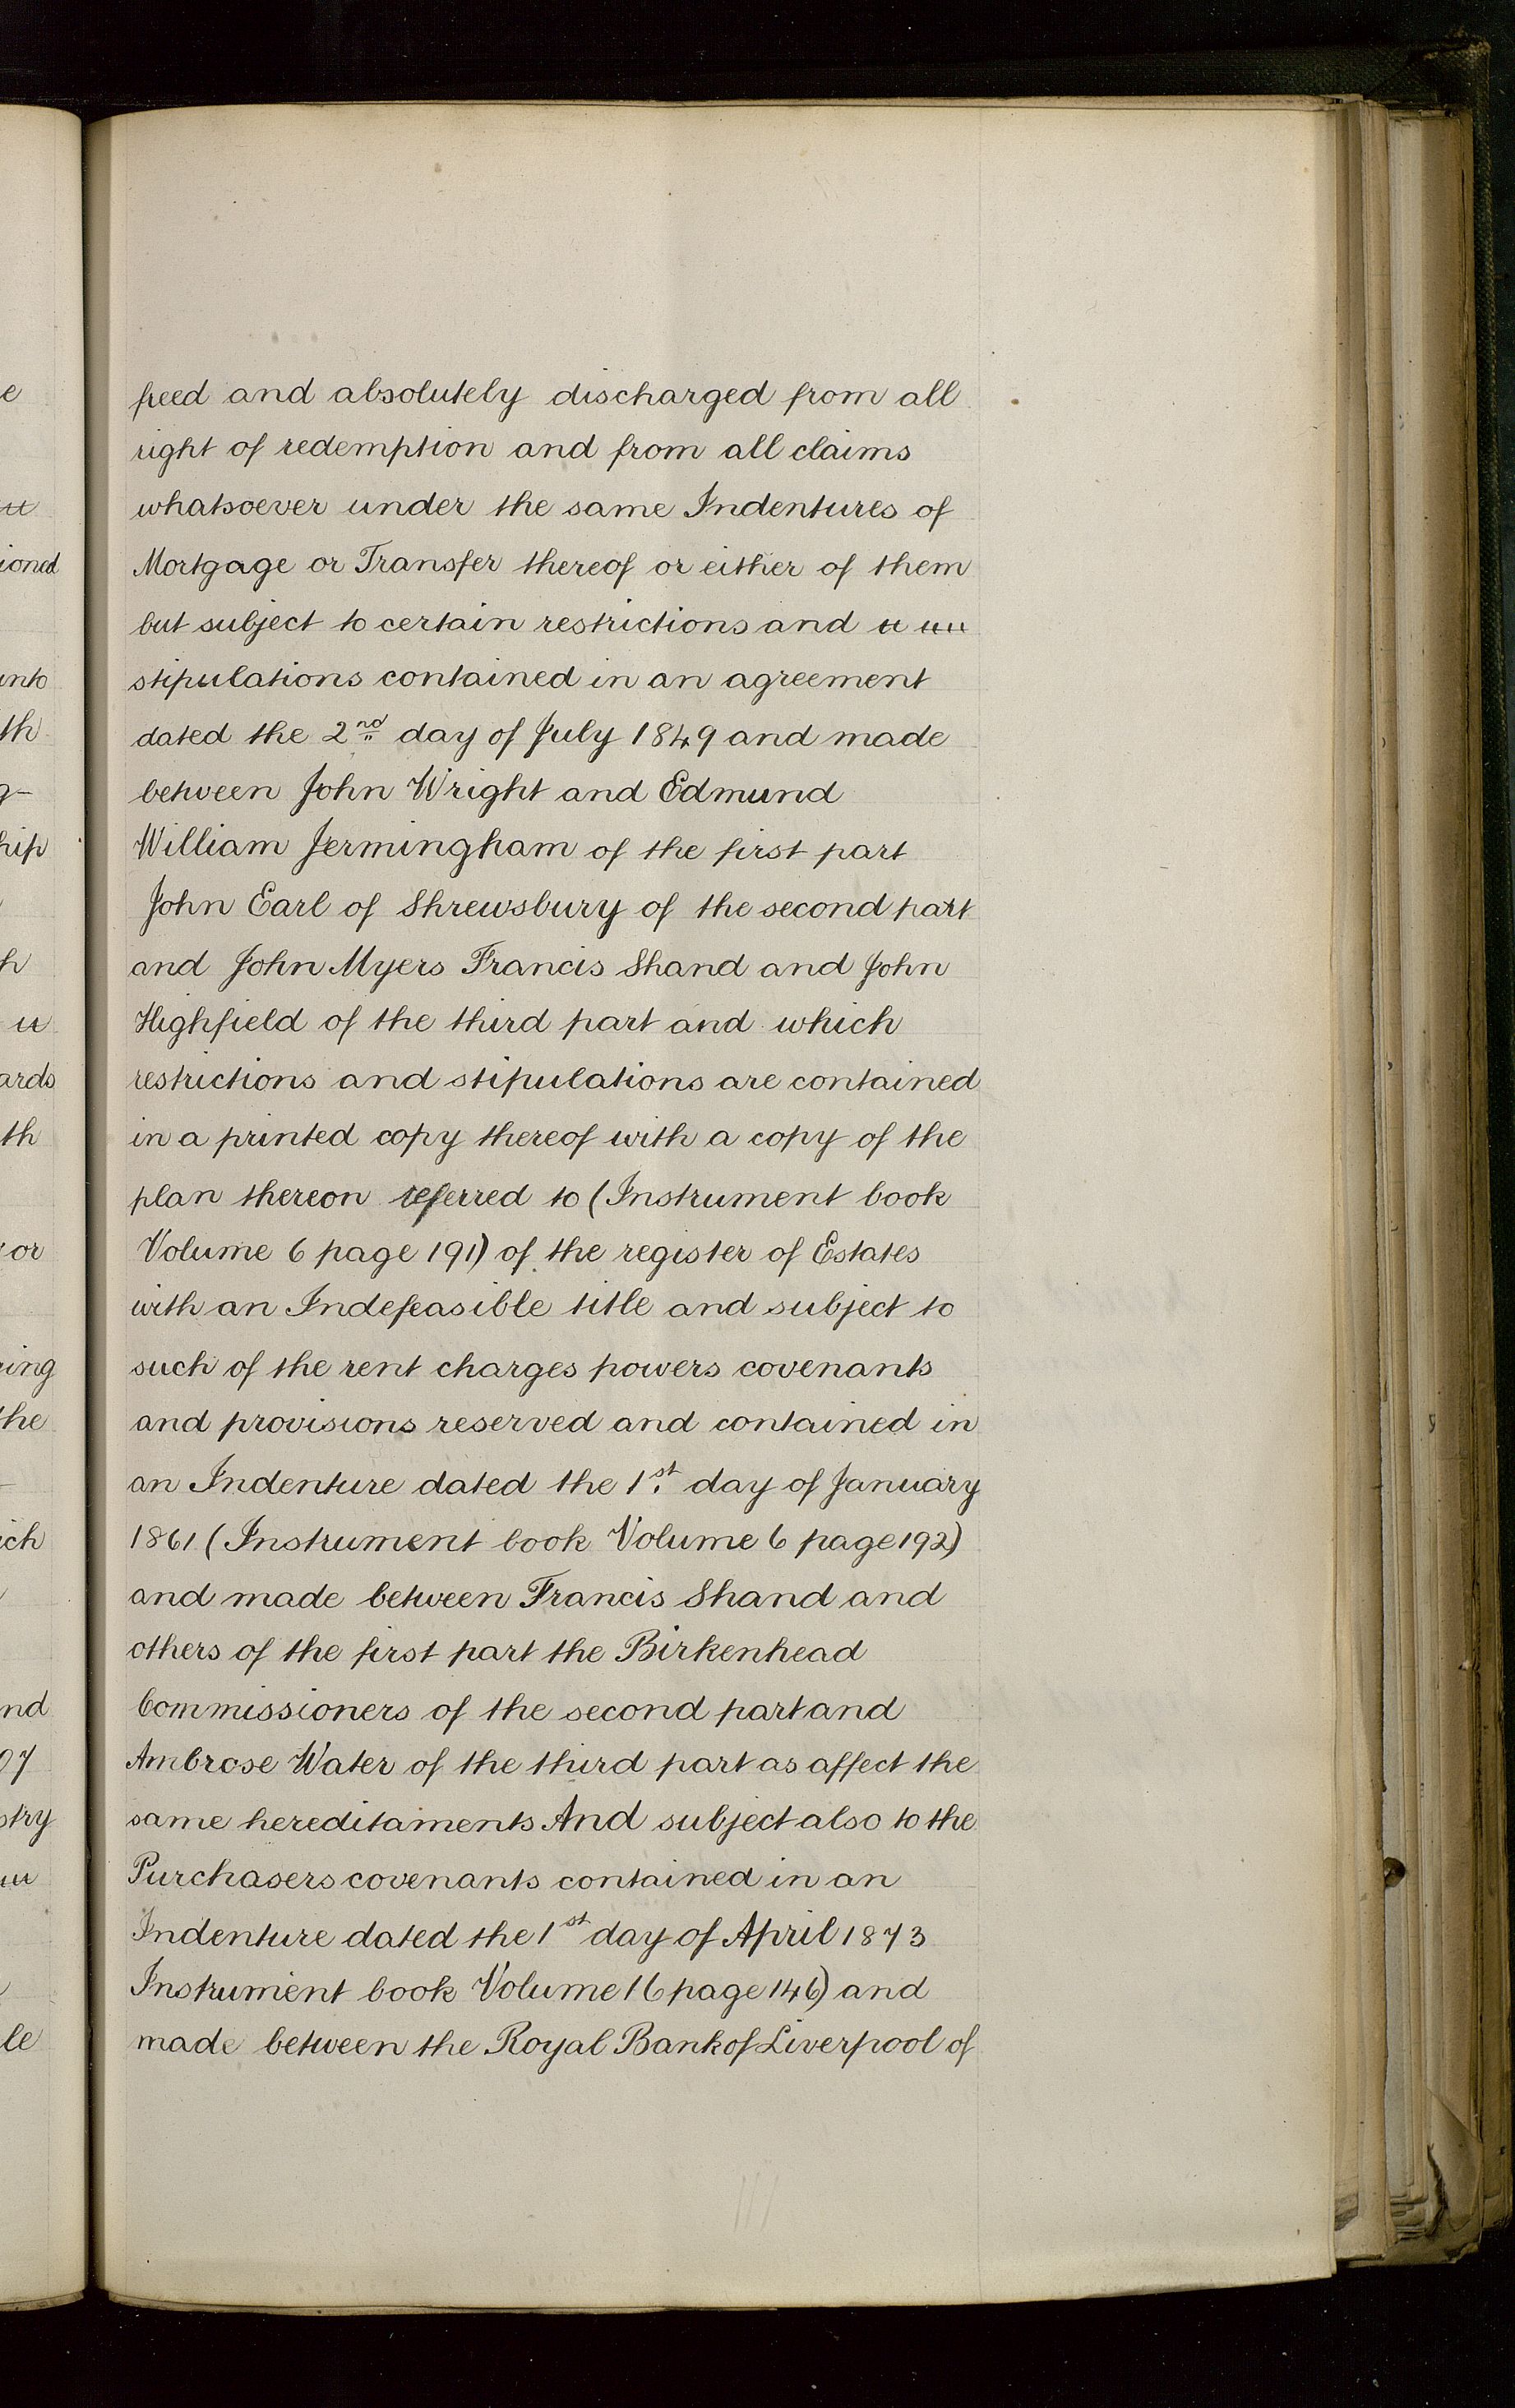 freed and absolutely discharged from all
right of redemption and from all claims
whatsoever under the same Indentures of
Mortgage or Transfer thereof or either of them
but subject to certain restrictions and
stipulations contained in an agreement
dated the 2nd day of July 1849 and made
between John Wright and Edmund
William Jermingham of the first part
John Earl of Shrewsbury of the second part
and John Myers Francis Shand and John
Highfield of the third part and which
restrictions and stipulations are contained
in a printed copy thereof with a copy of the
plan thereon referred to (Instrument book
Volume 6 page 191) of the register of Estates
with an Indefeasible title and subject to
such of the rent charges powers covenants
and provisions reserved and contained in
an Indenture dated the 1st day of January
1861 (Instrument book Volume 6 page 192)
and made between Francis Shand and
others of the first part the Birkenhead
Commissioners of the second part and
Ambrose Water of the third part as affect the
same hereditaments And subject also to the
Purchasers covenants contained in an
Indenture dated the 1st day of April 1873
Instrument book Volume 16 page 146) and
made between the Royal Bank of Liverpool of